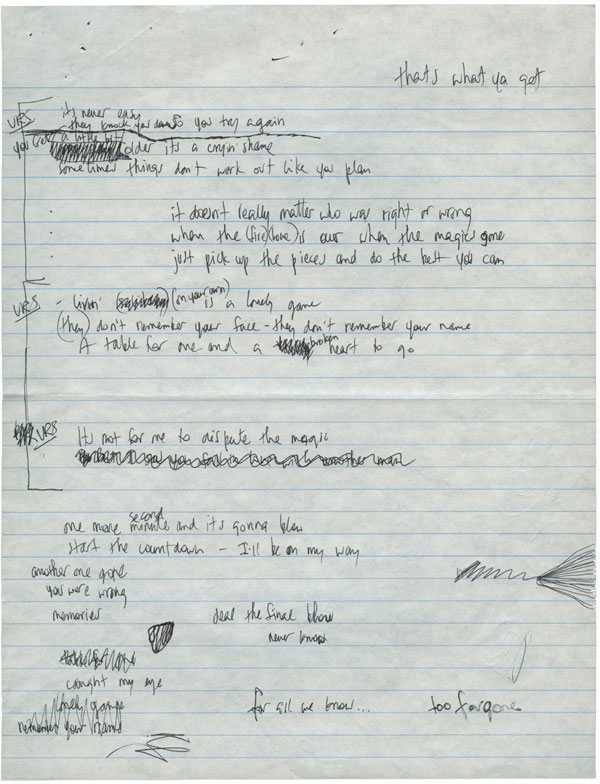 thats what ya get
VRS
its never easy
they knock you down so you try again
you get a little bit older its a cryin' shame
sometimes things don't work out like you plan
it doesn't really matter who was right or wrong
when the (fire) (love) is over when the magics gone
just pick up the pieces and do the best you can
VRS
- livin' (on your own) is a lonely game
(they) don't remember your face - they don't remember your name
A table for one and a broken heart to go
VRS
Its not for me to dispute the magic
second
one more minute and its gonna blow
start the countdown - I'll be on my way
another one gone
you were wrong
memories
deal the final blow
never know
caught my eye
lonely game
remember your name
for all we know...
too far gone